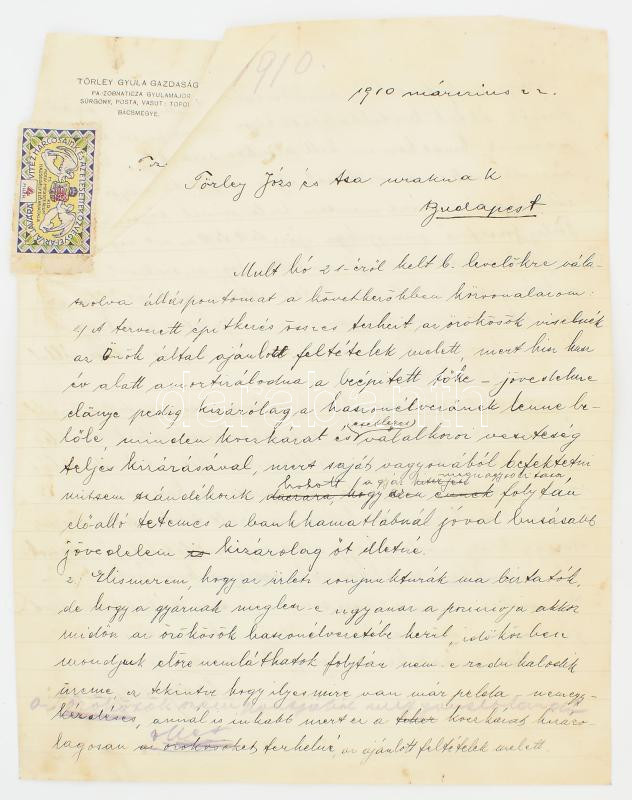 1910.
TÖRLEY GYULA GAZDASÁG
PA-ZOBNATICZA GYULAMAJOR
SÜRGÖNY, POSTA, VASUT: TOPOL
BÁCSMEGYE.
1910 március 22.
Törley Józs és tsa uraknak
Budapest
Mult hó 21-éről kelt b. levelökre vála-
szolva álláspontomat a következőkben körvonalazom:
1/ A tervezett építkezés összes terheit az örökösök viselnék
az Önök által ajánlott feltételek mellett, mert hisz húsz
év alatt amortizálódna a beépitett tőke – jövedelme
előnye pedig kizárólag a haszonélvezőnek lenne be-
lőle, minden koczkázat és esetleges válalkozoi veszteség
teljes kizárásával, mert saját vagyonából befektetni
mitsem szándékozik hogy folytán
előálló tetemes a bankkamatlábnál jóval busásabb
jövedelem is kizárolag őt illetné.
2/ Elismerem, hogy az üzleti conjunkturák ma biztatók,
de hogy a gyárnak meglesz-e ugyanaz a poziciója akkor
midőn az örökösök haszonélvezetébe kerül, időközben
mondjuk előre nem láthatok folytán nem-e redukalodik
üzeme, tekintve hogy ilyesmire van már példa –
kérdéses, annál is inkább mert ez a koczkázat kizáro-
lagosan őket az örökösöket terhelné, az ajánlott feltételek melett.